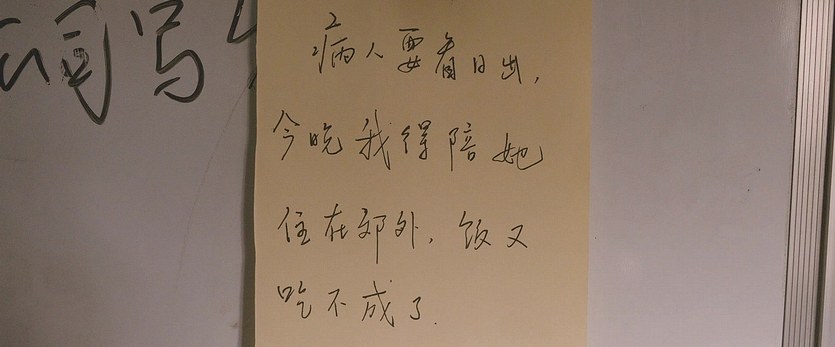 词写
病人要看日出,
今晚我得陪她
住在郊外,饭又
吃不成了.